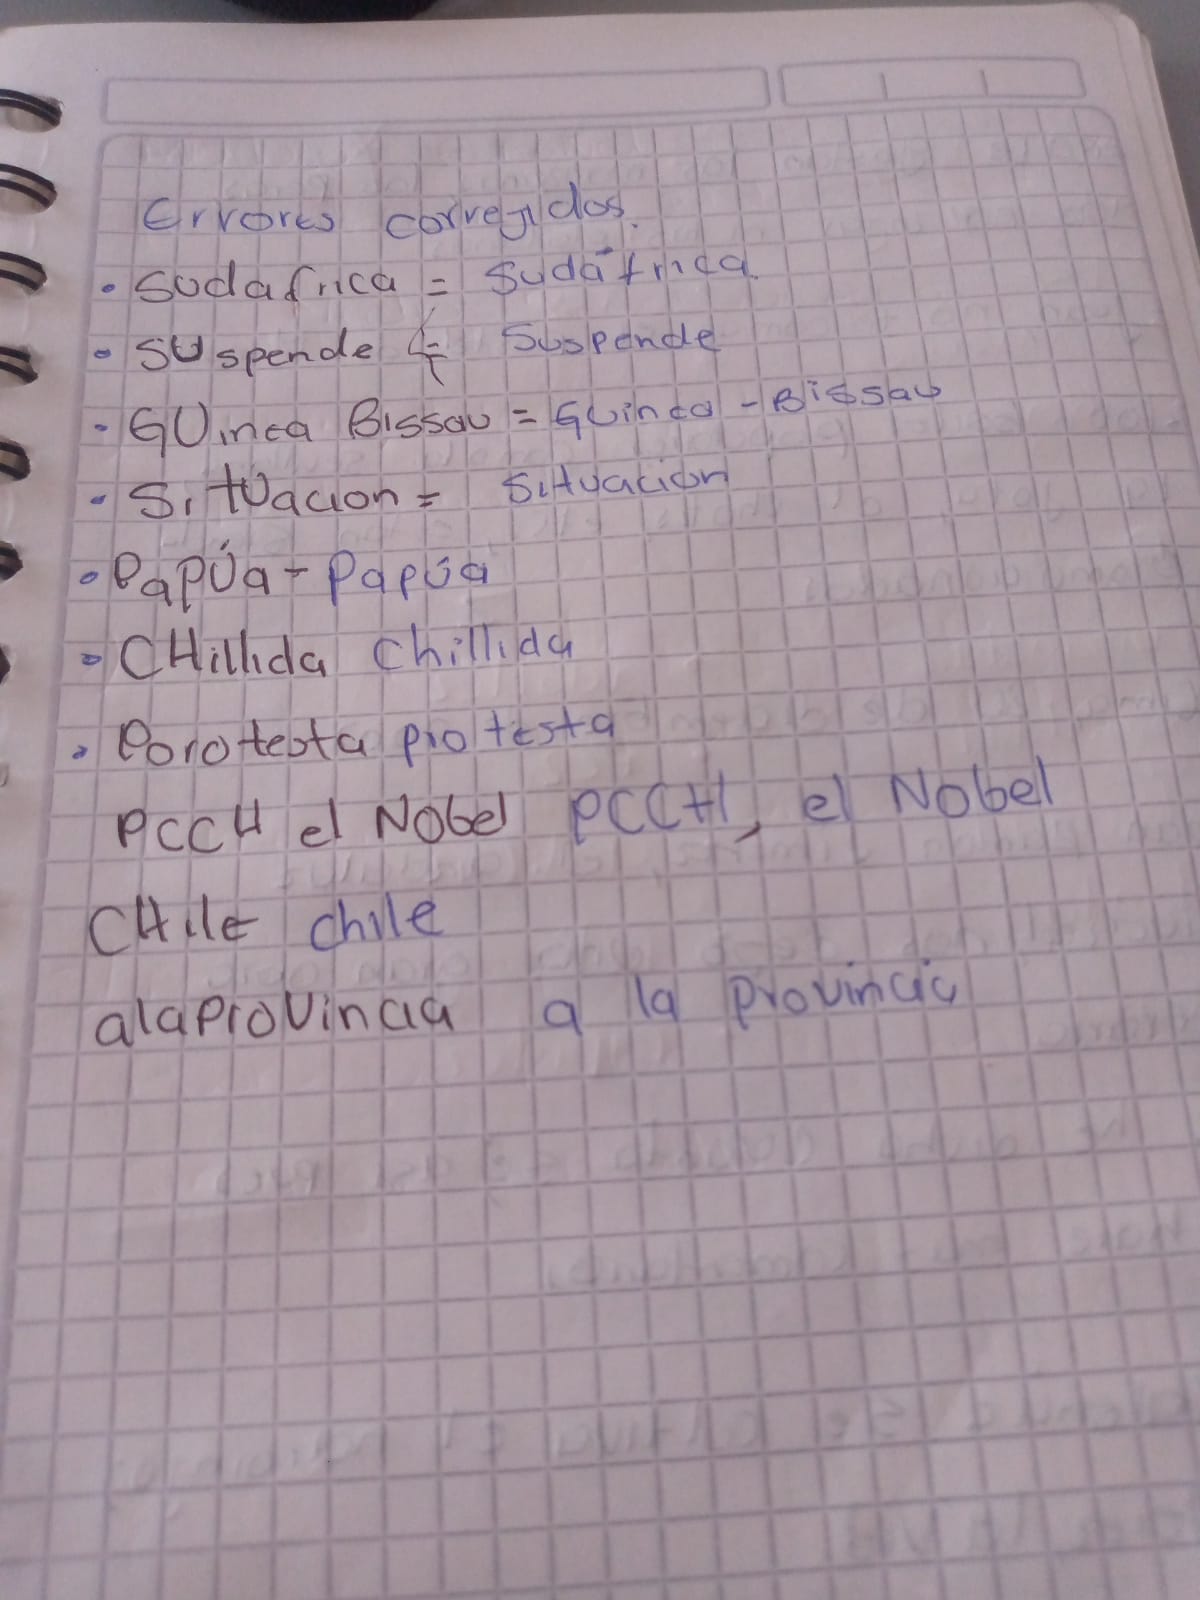 Errores correjidos.
• sudafrica = Sudáfrica.
• SUspende = Suspende
• GUinea Bissau = Guinea - Bissau
• SitUacion = Situación
• PapÚa - Papúa
• CHillida Chillida
• Porotesta protesta
PCCH el Nobel PCCH, el Nobel
CHile chile
alaproVincia a la provincia